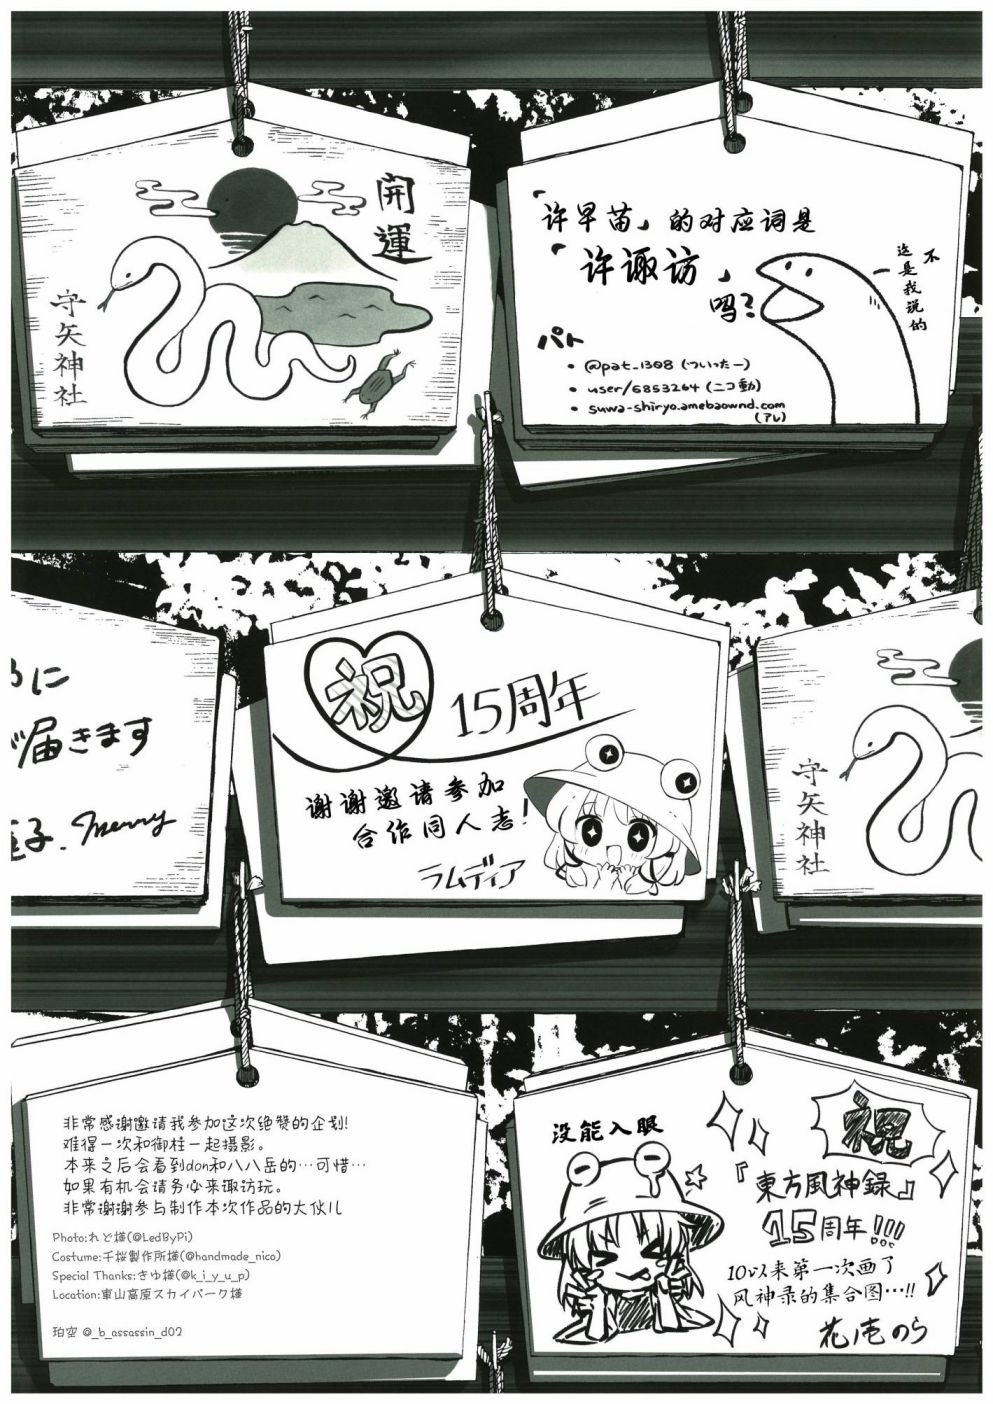 開
運
守矢神社
「许早苗」的对应词是
「许诹访」
吗?
不
这是我说的
パト
• @pat_1308 (ついったー)
• user/6853264 (ニコ動)
• suwa-shiryo.amebaownd.com
(アレ)
に
届きます
子. Merry
祝 15周年
谢谢邀请参加
合作同人志!
ラムディア
守矢神社
非常感谢邀请我参加这次绝赞的企划!
难得一次和御柱一起摄影。
本来之后会看到don和八八岳的…可惜…
如果有机会请务必来诹访玩。
非常谢谢参与制作本次作品的大伙儿
Photo:れど様(@LedByPi)
Costume:千桜製作所様(@handmade_nico)
Special Thanks:きゆ様(@k_i_y_u_p)
Location:東山高原スカイパーク様
珀空 @_b_assassin_d02
没能入眼
祝
『東方風神録』
15周年!!!
10以来第一次画了
风神录的集合图…!!
花ノ壱のら